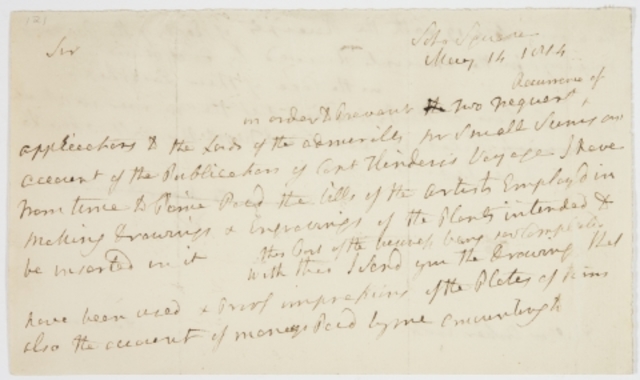 (2)
Soho Square
Sir
May 14 1814
Recurrence of
in order to prevent the two frequent
applications to the Lords of the admiralty for Small Sums on
account of the Publication of Capt Flinders's Voyage I have
from time to time Paid the bills of the artists Employd in
making Drawings & Engravings of the Plants intended to
be inserted in it this part of the business being now compleated
with this I send you the Drawings that
have been used & proof impressions of the Plates
also the account of moneys Paid by me amounting to